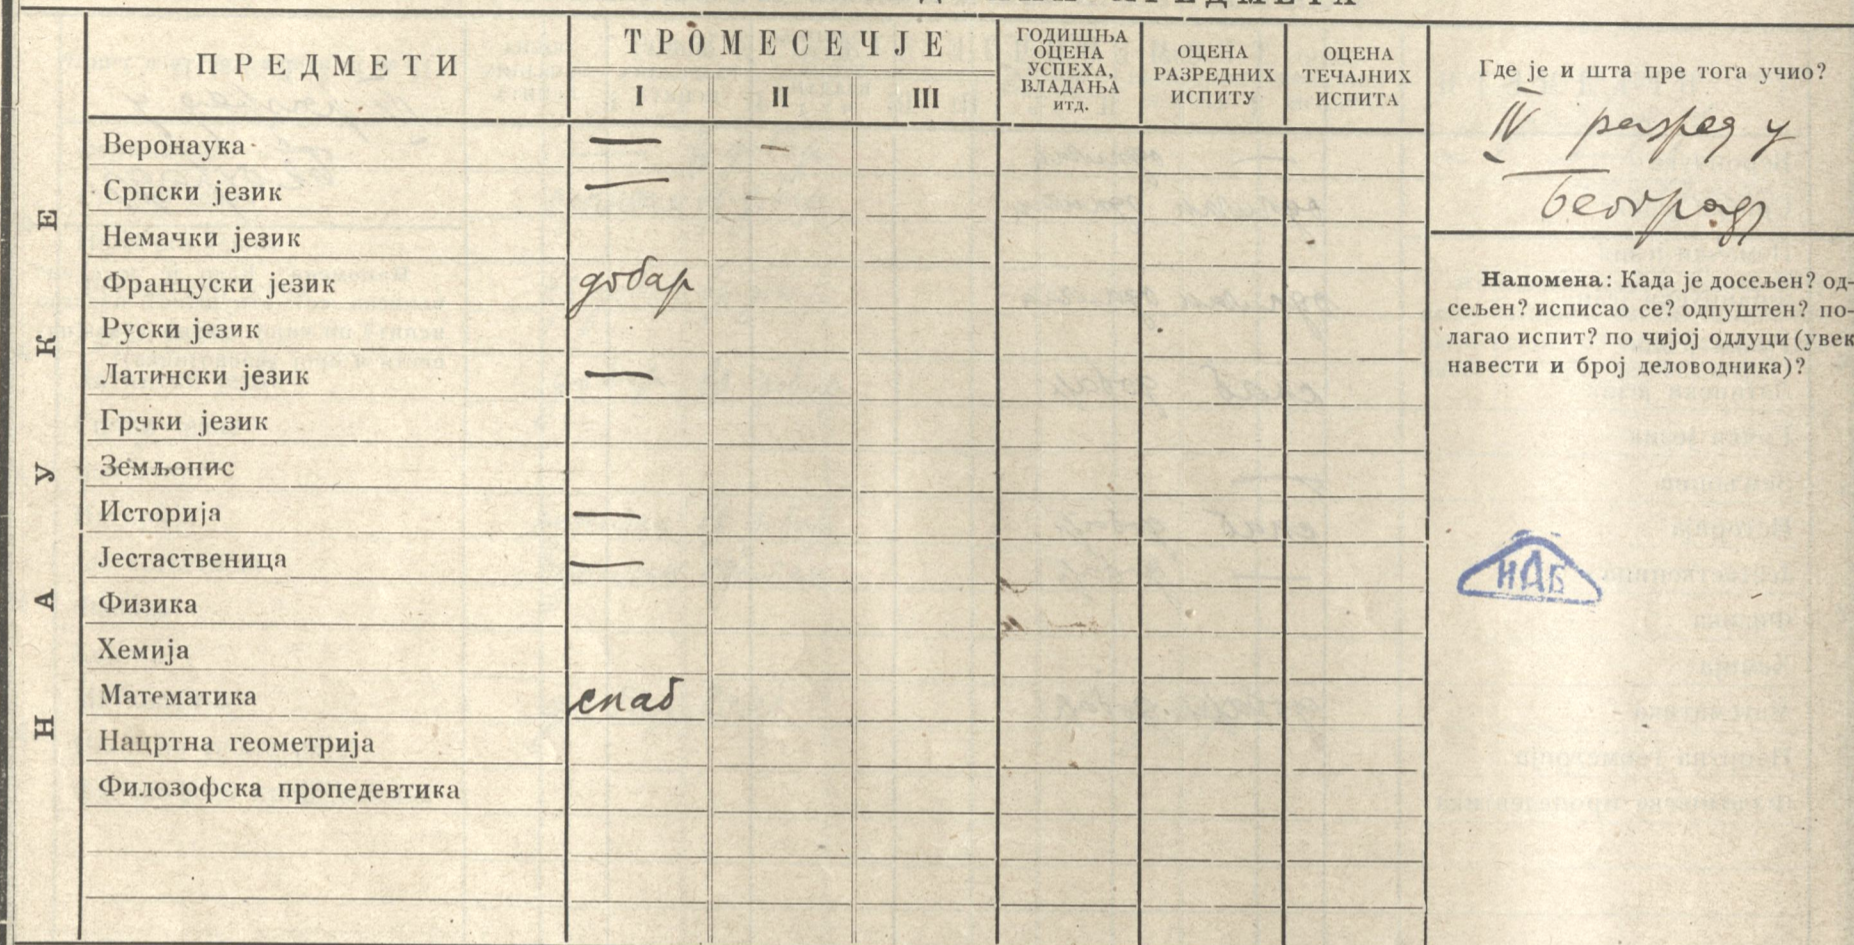 ПРЕДМЕТИ
ТРОМЕСЕЧЈЕ
I II III
ГОДИШЊА
ОЦЕНА
УСПЕХА,
ВЛАДАЊА
ИТД.
ОЦЕНА
РАЗРЕДНИХ
ИСПИТУ
ОЦЕНА
ТЕЧАЈНИХ
ИСПИТА
НАУКЕ
Веронаука — —
Српски језик — —
Немачки језик
Француски језик добар
Руски језик
Латински језик —
Грчки језик
Земљопис
Историја —
Јестаственица —
Физика
Хемија
Математика слаб
Нацртна геометрија
Филозофска пропедевтика
Где је и шта пре тога учио?
IV разред у
Београду
Напомена: Када је досељен? од-
сељен? исписао се? одпуштен? по-
лагао испит? по чијој одлуци (увек
навести и број деловодника)?
ИАБ